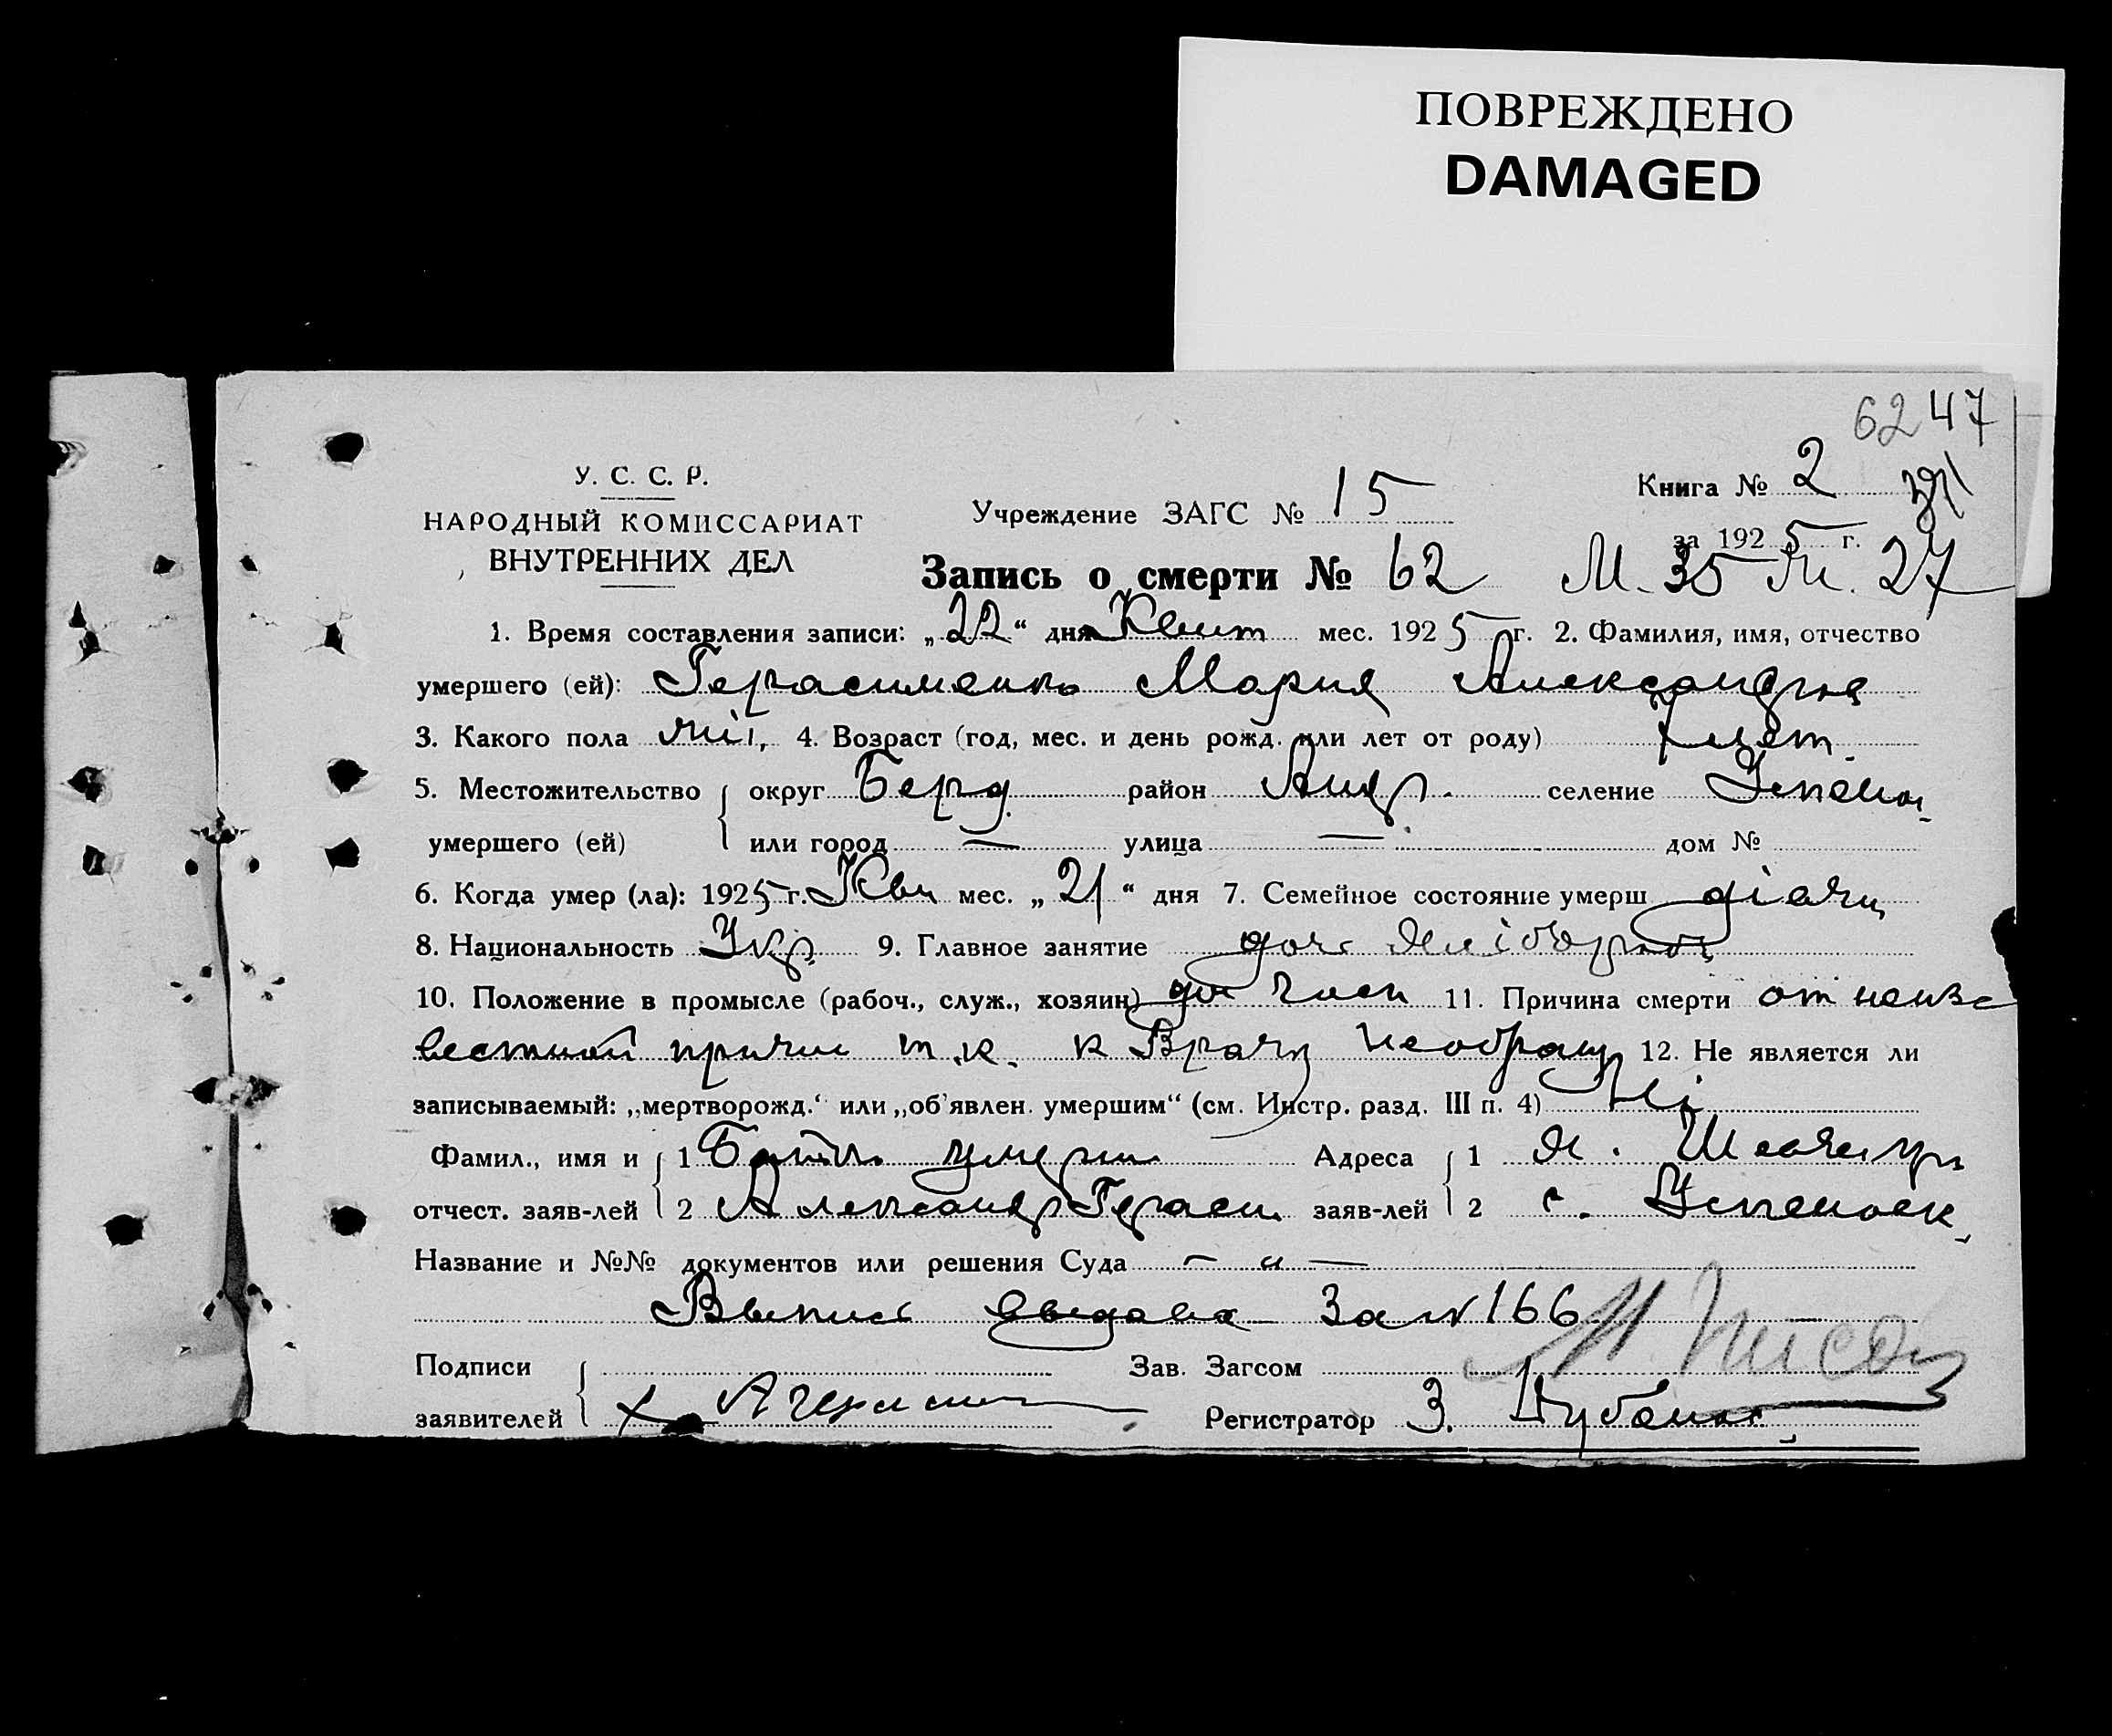 ПОВРЕЖДЕНО
DAMAGED
62 47
У. С. С. Р.
НАРОДНЫЙ КОМИССАРИАТ
ВНУТРЕННИХ ДЕЛ
Учреждение ЗАГС № 15
Книга № 2
за 1925 г.
Запись о смерти № 62 М. 35 Ж. 27
1. Время составления записи: „22“ дня Квит мес. 1925 г. 2. Фамилия, имя, отчество
умершего (ей): Герасименко Мария Александрив
3. Какого пола жін. 4. Возраст (год, мес. и день рожд. или лет от роду)
5. Местожительство округ Берд. район Андр. селение Успенов
умершего (ей) или город — улица — дом №
6. Когда умер (ла): 1925 г. Квит мес. „21“ дня 7. Семейное состояние умерш
8. Национальность Укр. 9. Главное занятие доч хлібороба
10. Положение в промысле (рабоч., служ., хозяин) 11. Причина смерти от неиз
вестной причин т.к. к врачу необращ 12. Не является ли
записываемый: „мертворожд.“ или „об'явлен. умершим“ (см. Инстр. разд. III п. 4) Ні
Фамил., имя и 1 Батько умерш Адреса 1
отчест. заяв-лей 2 Александр Герасим заяв-лей 2 с. Успеновк
Название и №№ документов или решения Суда — „ —
Выпись выдана за № 166
Подписи Зав. Загсом
заявителей А Герасим Регистратор З.